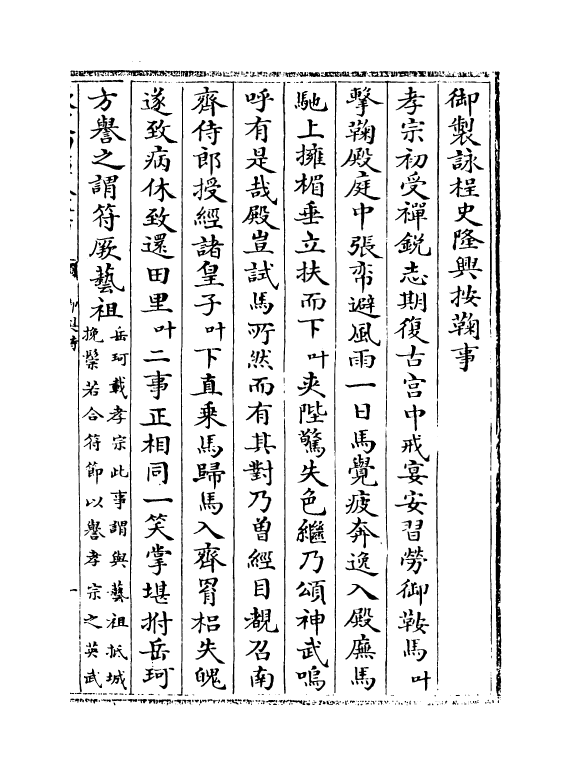 御製詠桯史隆興按鞠事
孝宗初受禪銳志期復古宫中戒宴安習勞御鞍馬叶
擊鞠殿庭中張帟避風雨一日馬覺疲奔逸入殿廡馬
馳上擁楣垂立扶而下叶夾陛驚失色繼乃頌神武嗚
呼有是哉殿豈試馬所然而有其對乃曽經目覩召南
齊侍郎授經諸皇子叶下直乘馬歸馬入齊胥梠失魄
遂致病休致還田里叶二事正相同一笑掌堪拊岳珂
方譽之謂符厥藝祖
岳珂載孝宗此事謂與藝祖抵城
挽鬃若合符節以譽孝宗之英武